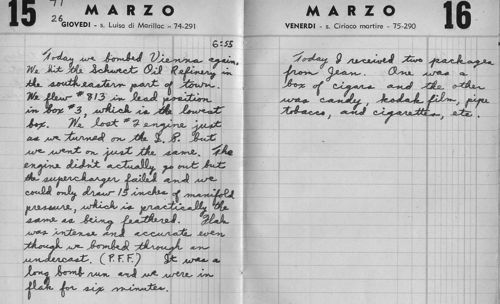 15
26
MARZO
GIOVEDI - s. Luisa di Marillac - 74-291
6:55
Today we bombed Vienna again.
We hit the Schwect Oil Refinery in
the southeastern part of town.
We flew #813 in lead position
in box #3, which is the lowest
box. We lost #2 engine just
as we turned on the I.P. but
we went on just the same. The
engine didn't actually go out but
the supercharger failed and we
could only draw 15 inches of manifold
pressure, which is practically the
same as being feathered. Flak
was intense and accurate even
though we bombed through an
undercast. (P.F.F.) It was a
long bomb run and we were in
flak for six minutes.
MARZO
16
VENERDI - s. Ciriaco martire - 75-290
Today I received two packages
from Jean. One was a
box of cigars and the other
was candy, kodak film, pipe
tobacco, and cigarettes, etc.